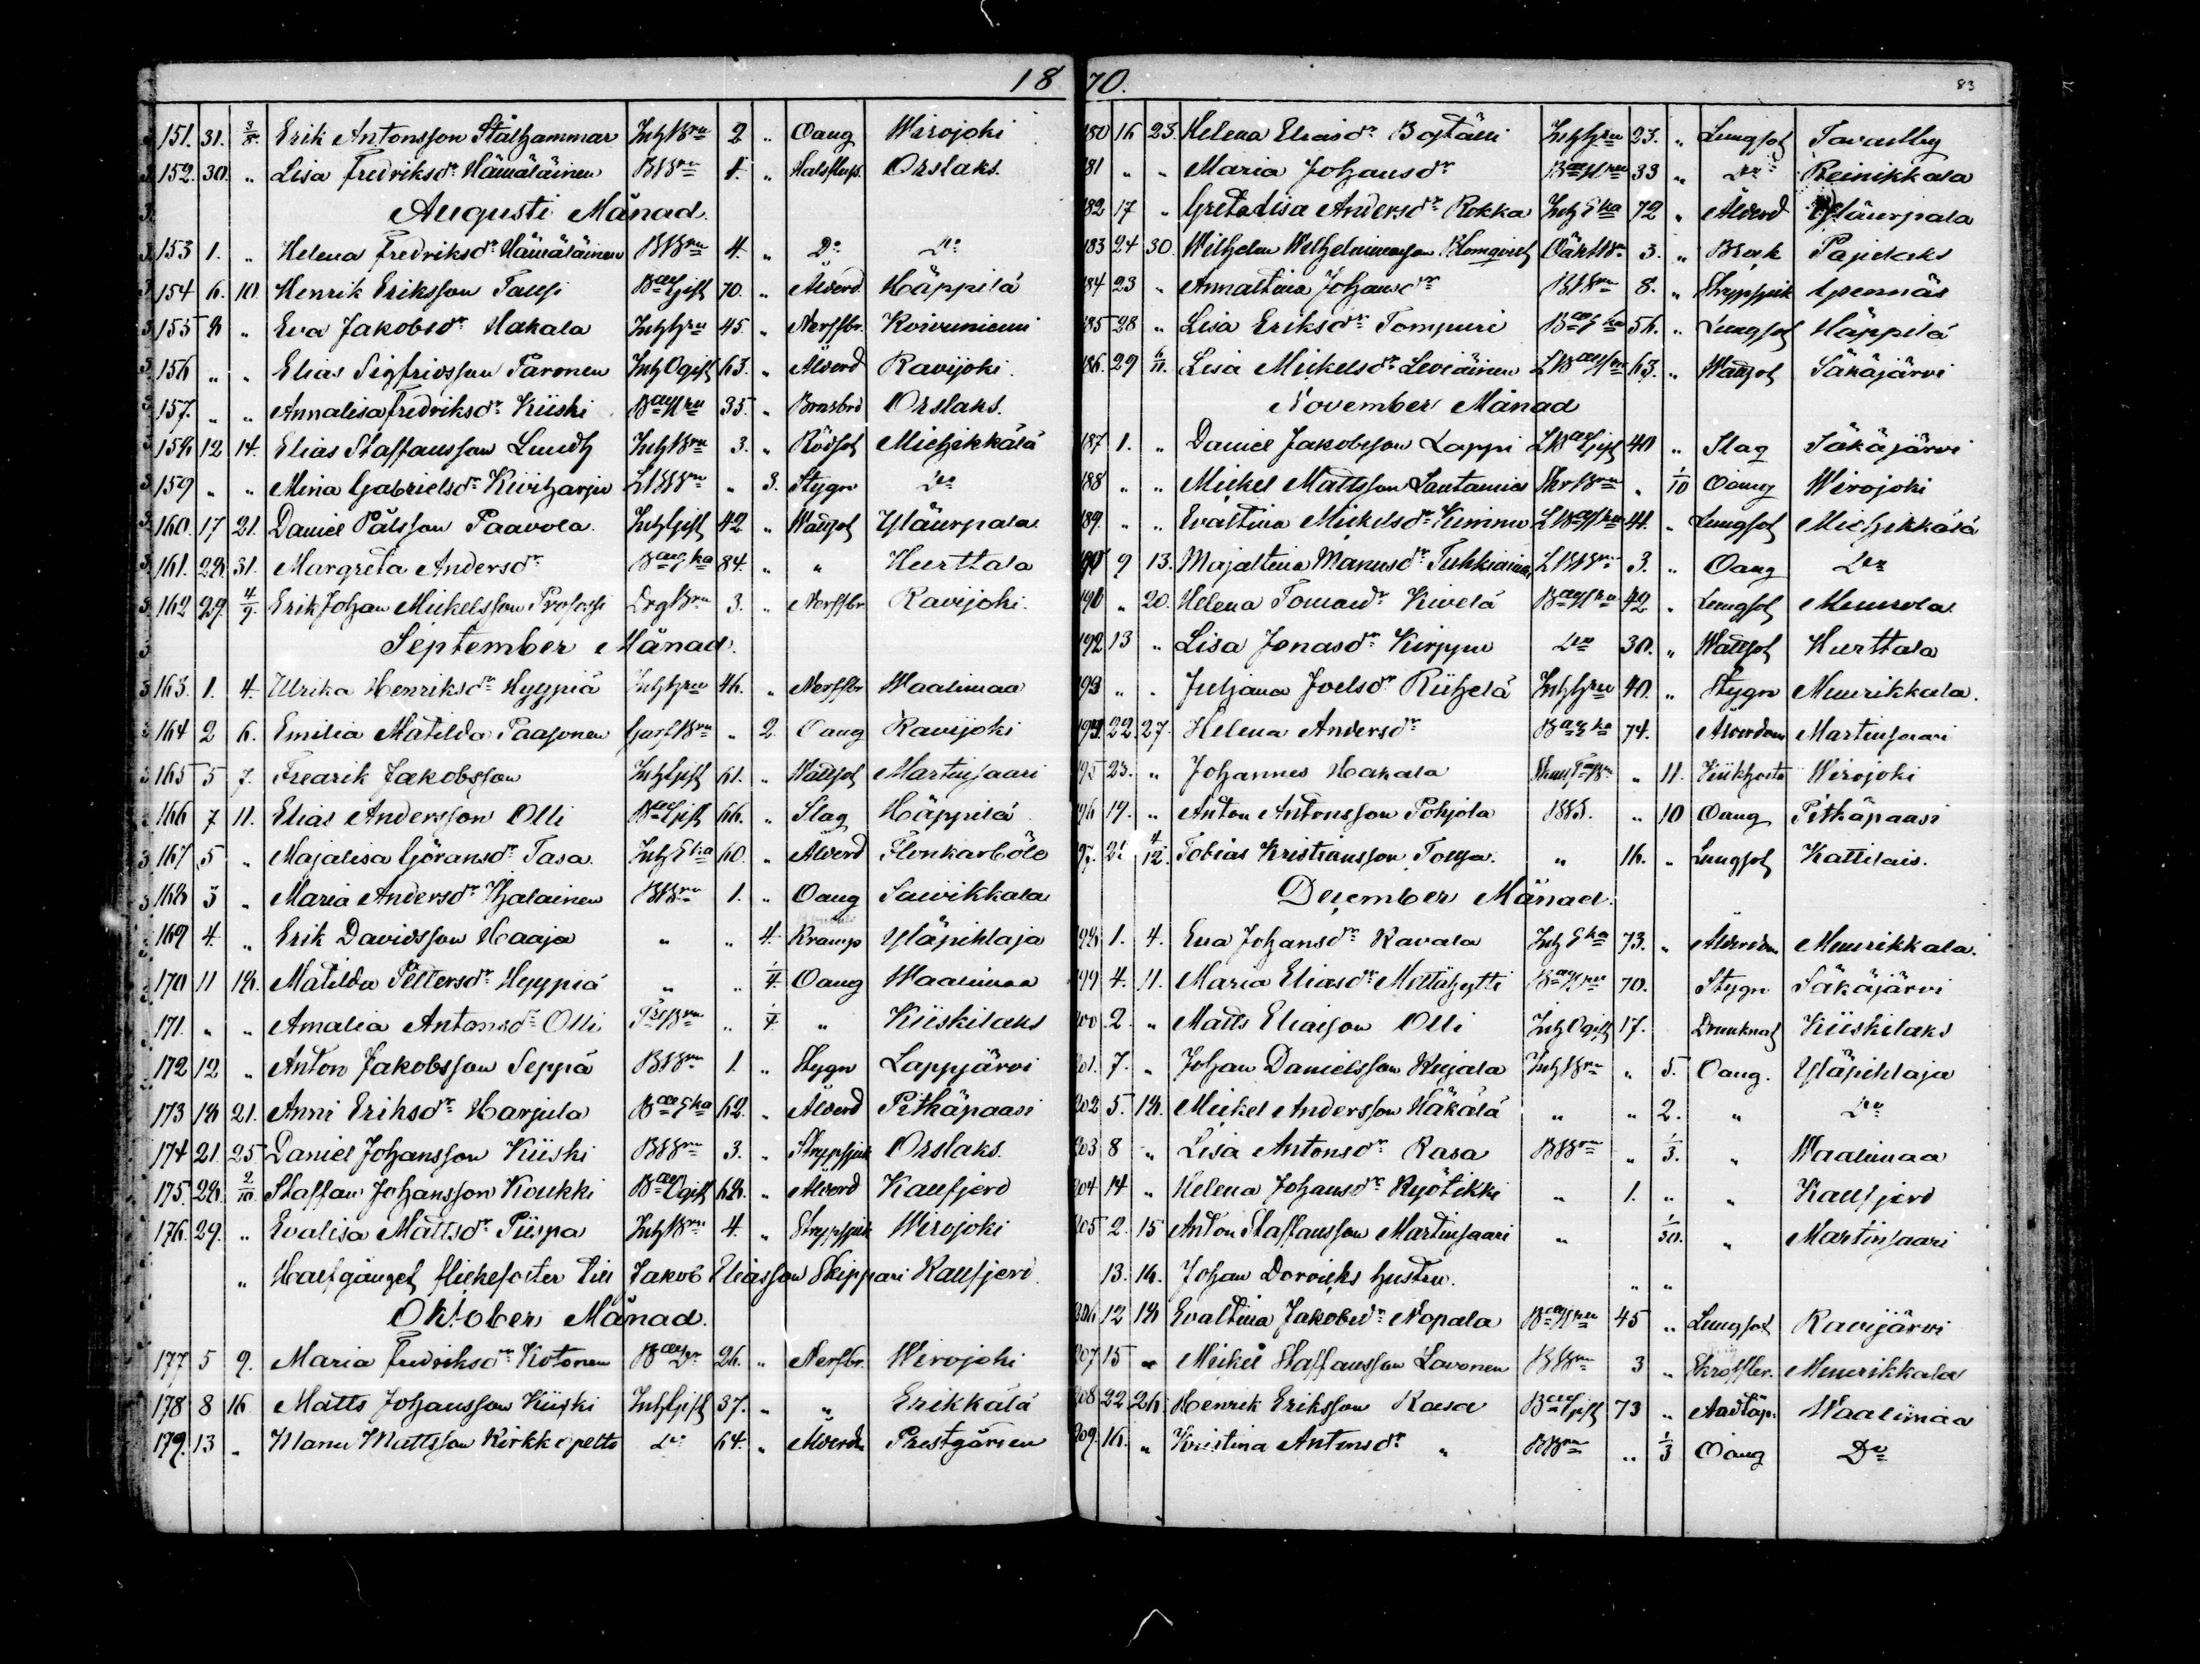 1870.
83
151. 31. 3/8. Erik Antonsson Stålhammar Inh Brn 2 " Oang Wirojoki
152. 30. " Lisa Fredriksdr Hämäläinen BBrn 1. " Halsfluss. Orslaks.
Augusti Månad.
153 1. " Helena Fredriksdr Hämäläinen BBrn 4. " Do Do
154 6. 10. Henrik Eriksson Taussi Bde Gift 70. " Ålderd Häppilä
155 8 " Eva Jakobsdr Hakala Inh Hru 45. " Nerffbr. Koivuniemi
156 " " Elias Sigfridsson Paronen Inh Ogift 63. " Ålderd Ravijoki.
157. " " Annalisa Fredriksdr Kiiski Bde Hru 35. " Brustbrd Orslaks.
158 12 14. Elias Staffansson Lundh Inh Brn 3. " Rödsot Miehikkälä
159 " " Mina Gabrielsdr Kiviharju LBBrn " 3. Stygn Do
160. 17 21. Daniel Pålsson Paavola. Inh Gift 42. " Wattsot Yläurpala
161. 28. 31. Margreta Andersdr Bde Eka 84. " " Hurttala
162 29. 4/9. Erik Johan Mickelsson Profossi Drg Brn 3. " Nerffbr Ravijoki.
September Månad.
163. 1. 4. Ulrika Henriksdr Hyppiä Inh Hru 46. " Nerffbr Waalimaa
164 2 6. Emilia Matilda Paasonen Brn " 2. Oang Ravijoki
165 5 7. Fredrik Jakobsson Inh Gift 61. " Wattsot Martinsaari
166 7 11. Elias Andersson Olli Bde Gift 66. " Slag Häppilä
167 5 " Majalisa Göransdr Tasa Inh Eka 60. " Ålderd Flonkarböle
168 3 " Maria Andersdr Ihalainen BBrn 1. " Oang Saivikkala
169 4. " Erik Davidsson Haaja " " 4. Kramp Yläpihlaja
170 11 18. Matilda Pettersdr Hyppiä " " 1/4. Oang Waalimaa
171. " " Amalia Antonsdr Olli Brn " 1/4. " Kiiskilaks
172 12 " Anton Jakobsson Seppä BBrn 1. " Stygn Lappjärvi
173 18 21. Anni Eriksdr Harjula Bde Eka 62. " Ålderd Pitkäpaasi
174 21. 25 Daniel Johansson Kiiski BBrn 3. " Strypsjuk Orslaks.
175. 28. 2/10. Staffan Johansson Koukki Bde Ogift 68. " Ålderd Kansfjerd
176. 29. " Evalisa Mattsdr Piispa Inh Brn 4. " Strypsjuk Wirojoki
" Halfgånget flickefoster till Jakob Eliasson Skippari Kallfjerd.
Oktober Månad.
177 5 9. Maria Fredriksdr Kotonen Bde Dr 26. " Nerffbr. Wirojoki
178 8 16 Matts Johansson Kiiski Inh Gift 37. " " Erikkälä
179. 13 " Manu Mattsson Kirkkopelto Do 64. " Ålderd Prestgården
180 16 23. Helena Eliasdr Inh Hru 23. " Lungsot Tavastby
181 " " Maria Johansdr Bde Hru 33 " Do Reinikkala
182 17 " Greta Lisa Andersdr Rokka Inh Eka 72 " Ålderd Yläurpala
183 24 30. Wilhelm Wilhelminasson Blomqvist Oäkt Brn 3. " Bråck Pajulaks
184 23 " Annastina Johansdr BBrn 8. " Strypsjuk
185 28 " Lisa Eriksdr Tompuri Bde Eka 56. " Lungsot Häppilä
186. 29 6/11. Lisa Mickelsdr Leviäinen LBde Hru 63. " Wattsot Säkäjärvi
November Månad
187 1. " Daniel Jakobsson Lappi LBde Gift 40 " Slag Säkäjärvi
188 " " Mickel Mattsson Lautamies Brn " 1/10 Oang Wirojoki
189. " " Evastina Mickelsdr Kimmu LBde Hru 41. " Lungsot Miehikkälä
190 9 13. Majastina Manusdr Tuhkiainen LBBrn 3. " Oang Do
191 " 20. Helena Tomasdr Kivelä Bde Hru 42 " Lungsot Muurola.
192 13 " Lisa Jonasdr Kirppu Do 30. " Wattsot Hurttala
193 " " Juljana Joelsdr Riihelä Inh Hru 40. " Stygn Muurikkala.
194 22. 27. Helena Andersdr Bde Eka 74. Ålderdom Martinsaari
195 23. " Johannes Hakala Brn " 11. Kikhosta Wirojoki
196 19. " Anton Antonsson Pohjola BBB. " 10 Oang Pitkäpaasi
197. 4/12. Tobias Kristiansson Tolsa. " 16. " Lungsot Kattilais.
December Månad.
198 1. 4. Eva Johansdr Ravala Inh Eka 73. " Ålderdom Muurikkala.
199 4. 11. Maria Eliasdr Mettähytti Bde Hru 70. Stygn Säkäjärvi
200 2. " Matts Eliasson Olli Inh Ogift 17. Drunknat Kiiskilaks
201. 7. " Johan Danielsson Kujala Inh Brn " 5. Oang. Yläpihlaja
202 5. 18. Mickel Andersson Häkälä " " 2. " Do
203 8 " Lisa Antonsdr Rasa BBrn " 1/3. " Waalimaa
204 14 " Helena Johansdr Ryötikki " 1. " " Kallfjerd
205 2. 15 Anton Staffansson Martinsaari " 1/30. " Martinsaari
13. 16. Johan Dorvicks hustru. " "
206 12 18 Evastina Jakobsdr Nopala Bde Hru 45 " Lungsot Ravijärvi
207 15 " Mickel Staffansson Lavonen BBrn 3 " Skroffler. Muurikkala
208 22 26 Henrik Eriksson Rasa Bde Gift 73 " Andtäp: Waalimaa
209. 16. " Kristina Antonsdr " BBrn " 1/3 Oang Do